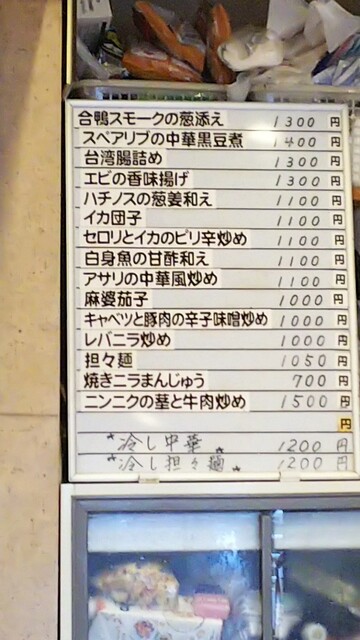 合鴨スモークの葱添え 1300 円
スペアリブの中華黒豆煮 1400 円
台湾腸詰め 1300 円
エビの香味揚げ 1300 円
ハチノスの葱姜和え 1100 円
イカ団子 1100 円
セロリとイカのピリ辛炒め 1100 円
白身魚の甘酢和え 1100 円
アサリの中華風炒め 1100 円
麻婆茄子 1000 円
キャベツと豚肉の辛子味噌炒め 1000 円
レバニラ炒め 1000 円
担々麺 1050 円
焼きニラまんじゅう 700 円
ニンニクの茎と牛肉炒め 1500 円
円
*冷し中華* 1200 円
*冷し担々麺* 1200 円